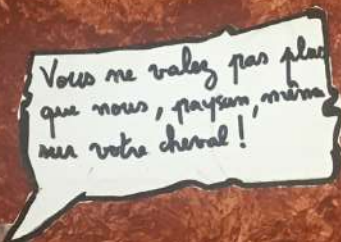 Vous ne valez pas plus
que nous, paysan, même
sur votre cheval !